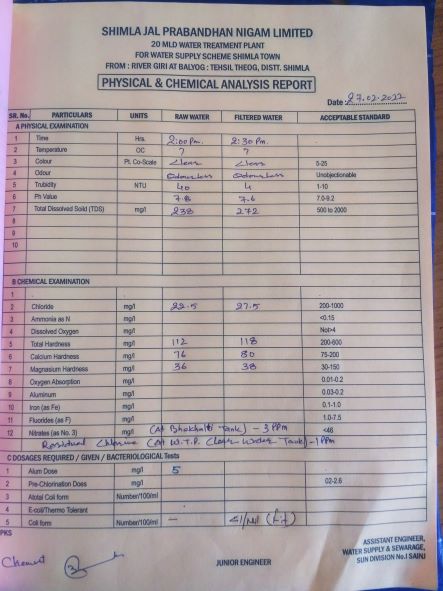 SHIMLA JAL PRABANDHAN NIGAM LIMITED
20 MLD WATER TREATMENT PLANT
FOR WATER SUPPLY SCHEME SHIMLA TOWN
FROM : RIVER GIRI AT BALYOG : TEHSIL THEOG, DISTT. SHIMLA
PHYSICAL & CHEMICAL ANALYSIS REPORT
Date 27.02.2022
SR. No. PARTICULARS UNITS RAW WATER FILTERED WATER ACCEPTABLE STANDARD
A PHYSICAL EXAMINATION
1 Time Hrs. 2:00 Pm. 2:30 Pm.
2 Temperature OC 7 7
3 Colour Pt. Co-Scale Clear Clear 5-25
4 Odour Odourless Odourless Unobjectionable
5 Trubidity NTU 40 4 1-10
6 Ph Value 7.8 7.6 7.0-9.2
7 Total Dissolved Soild (TDS) mg/l 238 272 500 to 2000
8
9
10
B CHEMICAL EXAMINATION
1
2 Chloride mg/l 22.5 27.5 200-1000
3 Ammonia as N mg/l <0.15
4 Dissolved Oxygen mg/l Not>4
5 Total Hardness mg/l 112 118 200-600
6 Calcium Hardness mg/l 76 80 75-200
7 Magnesium Hardness mg/l 36 38 30-150
8 Oxygen Absorption mg/l 0.01-0.2
9 Aluminum mg/l 0.03-0.2
10 Iron (as Fe) mg/l 0.1-1.0
11 Fluorides (as F) mg/l 1.0-7.5
12 Nitrates (as No. 3) mg/l <46
(At Tank) - 3 PPm
Residual Chlorine (At W.T.P. Clear Water Tank) - 1 PPm
C DOSAGES REQUIRED / GIVEN / BACTERIOLOGICAL Tests
1 Alum Dose mg/l 5
2 Pre-Chlorination Does mg/l 02-2.6
3 Atotal Coli form Number/100/ml
4 E-coli/Thermo Tolerant
5 Coli form Number/100/ml - (Fit)
PKS
Chemist
JUNIOR ENGINEER
ASSISTANT ENGINEER,
WATER SUPPLY & SEWARAGE,
SUN DIVISION No.I SAINJ